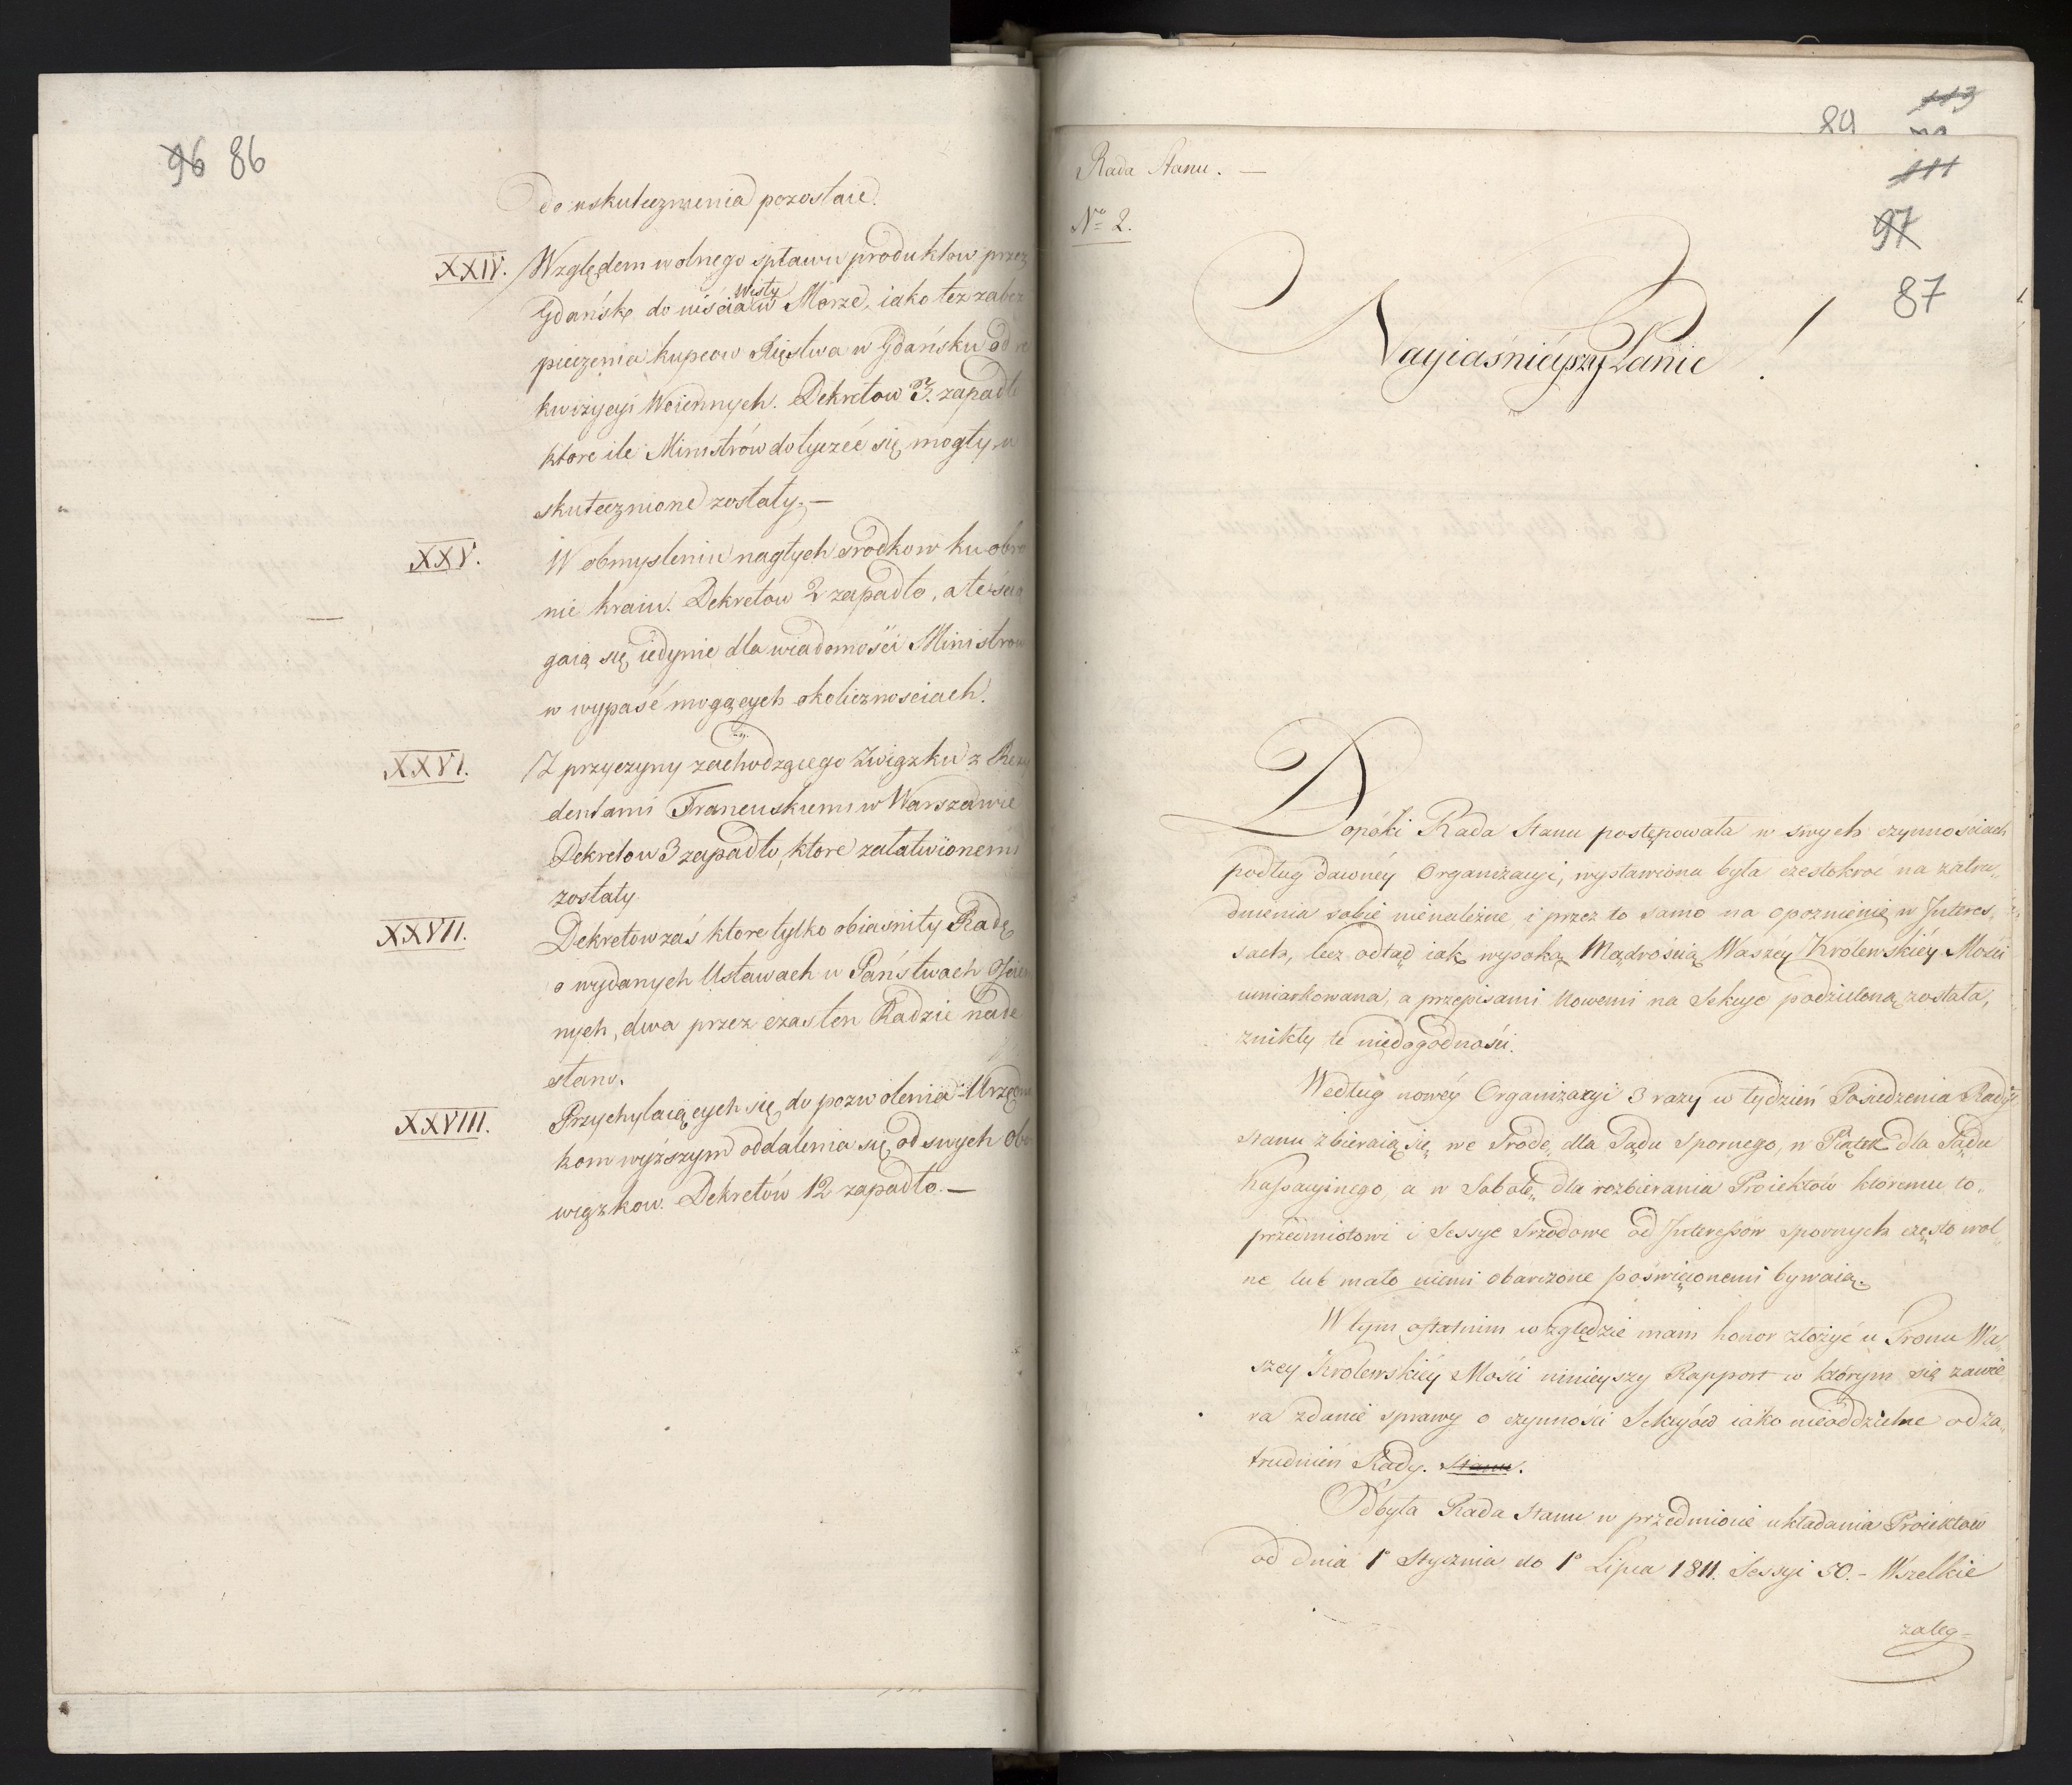 96 86
do uskutecznienia pozostaie.
XXIV. Względem wolnego spławu produktow przez
Gdańsk do uiścia Wisły w Morze, iako tez zabez
pieczenia kupcow Xięstwa w Gdańsku od re
kwizycyi Woiennych. Dekretow 3. zapadło
ktore ile Ministrów dotyczéć się mogły, u
skutecznione zostały. —
XXV. W obmysleniu nagłych srodkow ku obro
nie kraiu. Dekretow 2 zapadło, a te scią
gaią się iedynie dla wiadomości Ministrow
w wypaść mogących okolicznosciach.
XXVI. Z przyczyny zachodzącego Związku z Rezy
dentami Francuskiemi w Warszawie
Dekretow 3 zapadło, ktore załatwionemi
zostały.
XXVII. Dekretow zaś ktore tylko obiasniły Radę
o wydanych Ustawach w Państwach Oscien
nych, dwa przez czas ten Radzie nade
słano.
XXVIII. Przychylaiących się do pozwolenia Urzędni
kom wyższym oddalenia się od swych Obo
wiązkow. Dekretów 12 zapadło. —
113
89
111
97
87
Rada Stanu. —
No 2.
Nayiaśnieyszy Panie!
Dopóki Rada Stanu postępowała w swych czynnosciach
podług dawnéy Organizacyi, wystawiona była czestokroć na zatru„
dnienia sobie nienależne i przez to samo na opoznienie w Interes„
sach, lecz odtąd iak wysoką Mądrością Waszéy Krolewskiéy Mości
umiarkowana, a przepisami Nowemi na Sekcye podzieloną została,
znikły te niedogodności.
Według nowéy Organizacyi 3 razy w tydzień Posiedzenia Rady
Stanu zbieraią się we Srodę, dla Sądu Spornego, w Piątek dla Sądu
Kassacyinego, a w Sobotę, dla rozbierania Proiektów któremu to„
przedmiotowi i Sessye Srzodowe od Interessów spornych często wol„
ne, lub mało niemi obarczone poświęconemi bywaią.
W tym ostatnim względzie mam honor złożyć u Tronu Wa„
szey Krolewskiéy Mości ninieyszy Rapport w którym się zawie
ra zdanie sprawy o czynności Sekcyów iako nieoddzielne od za„
trudnień Rady. Stanu.
Odbyła Rada Stanu w przedmiocie układania Proiektów
od dnia 1o Stycznia do 1o Lipca 1811. Sessyi 50. – Wszelkie
zaleg=